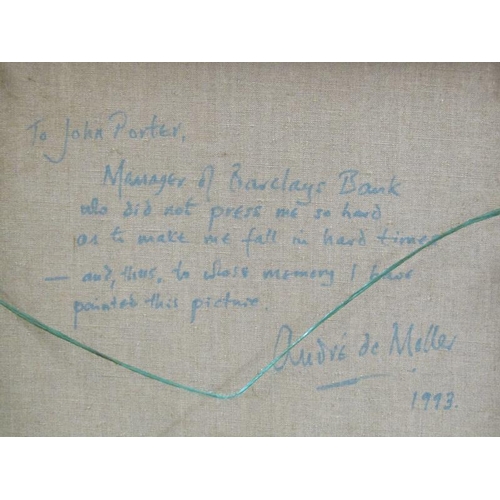 To John Porter,
Manager of Barclays Bank
who did not press me so hard
as to make me fall in hard times
— and, thus, to whose memory I have
painted this picture.
André de Moller
1993.